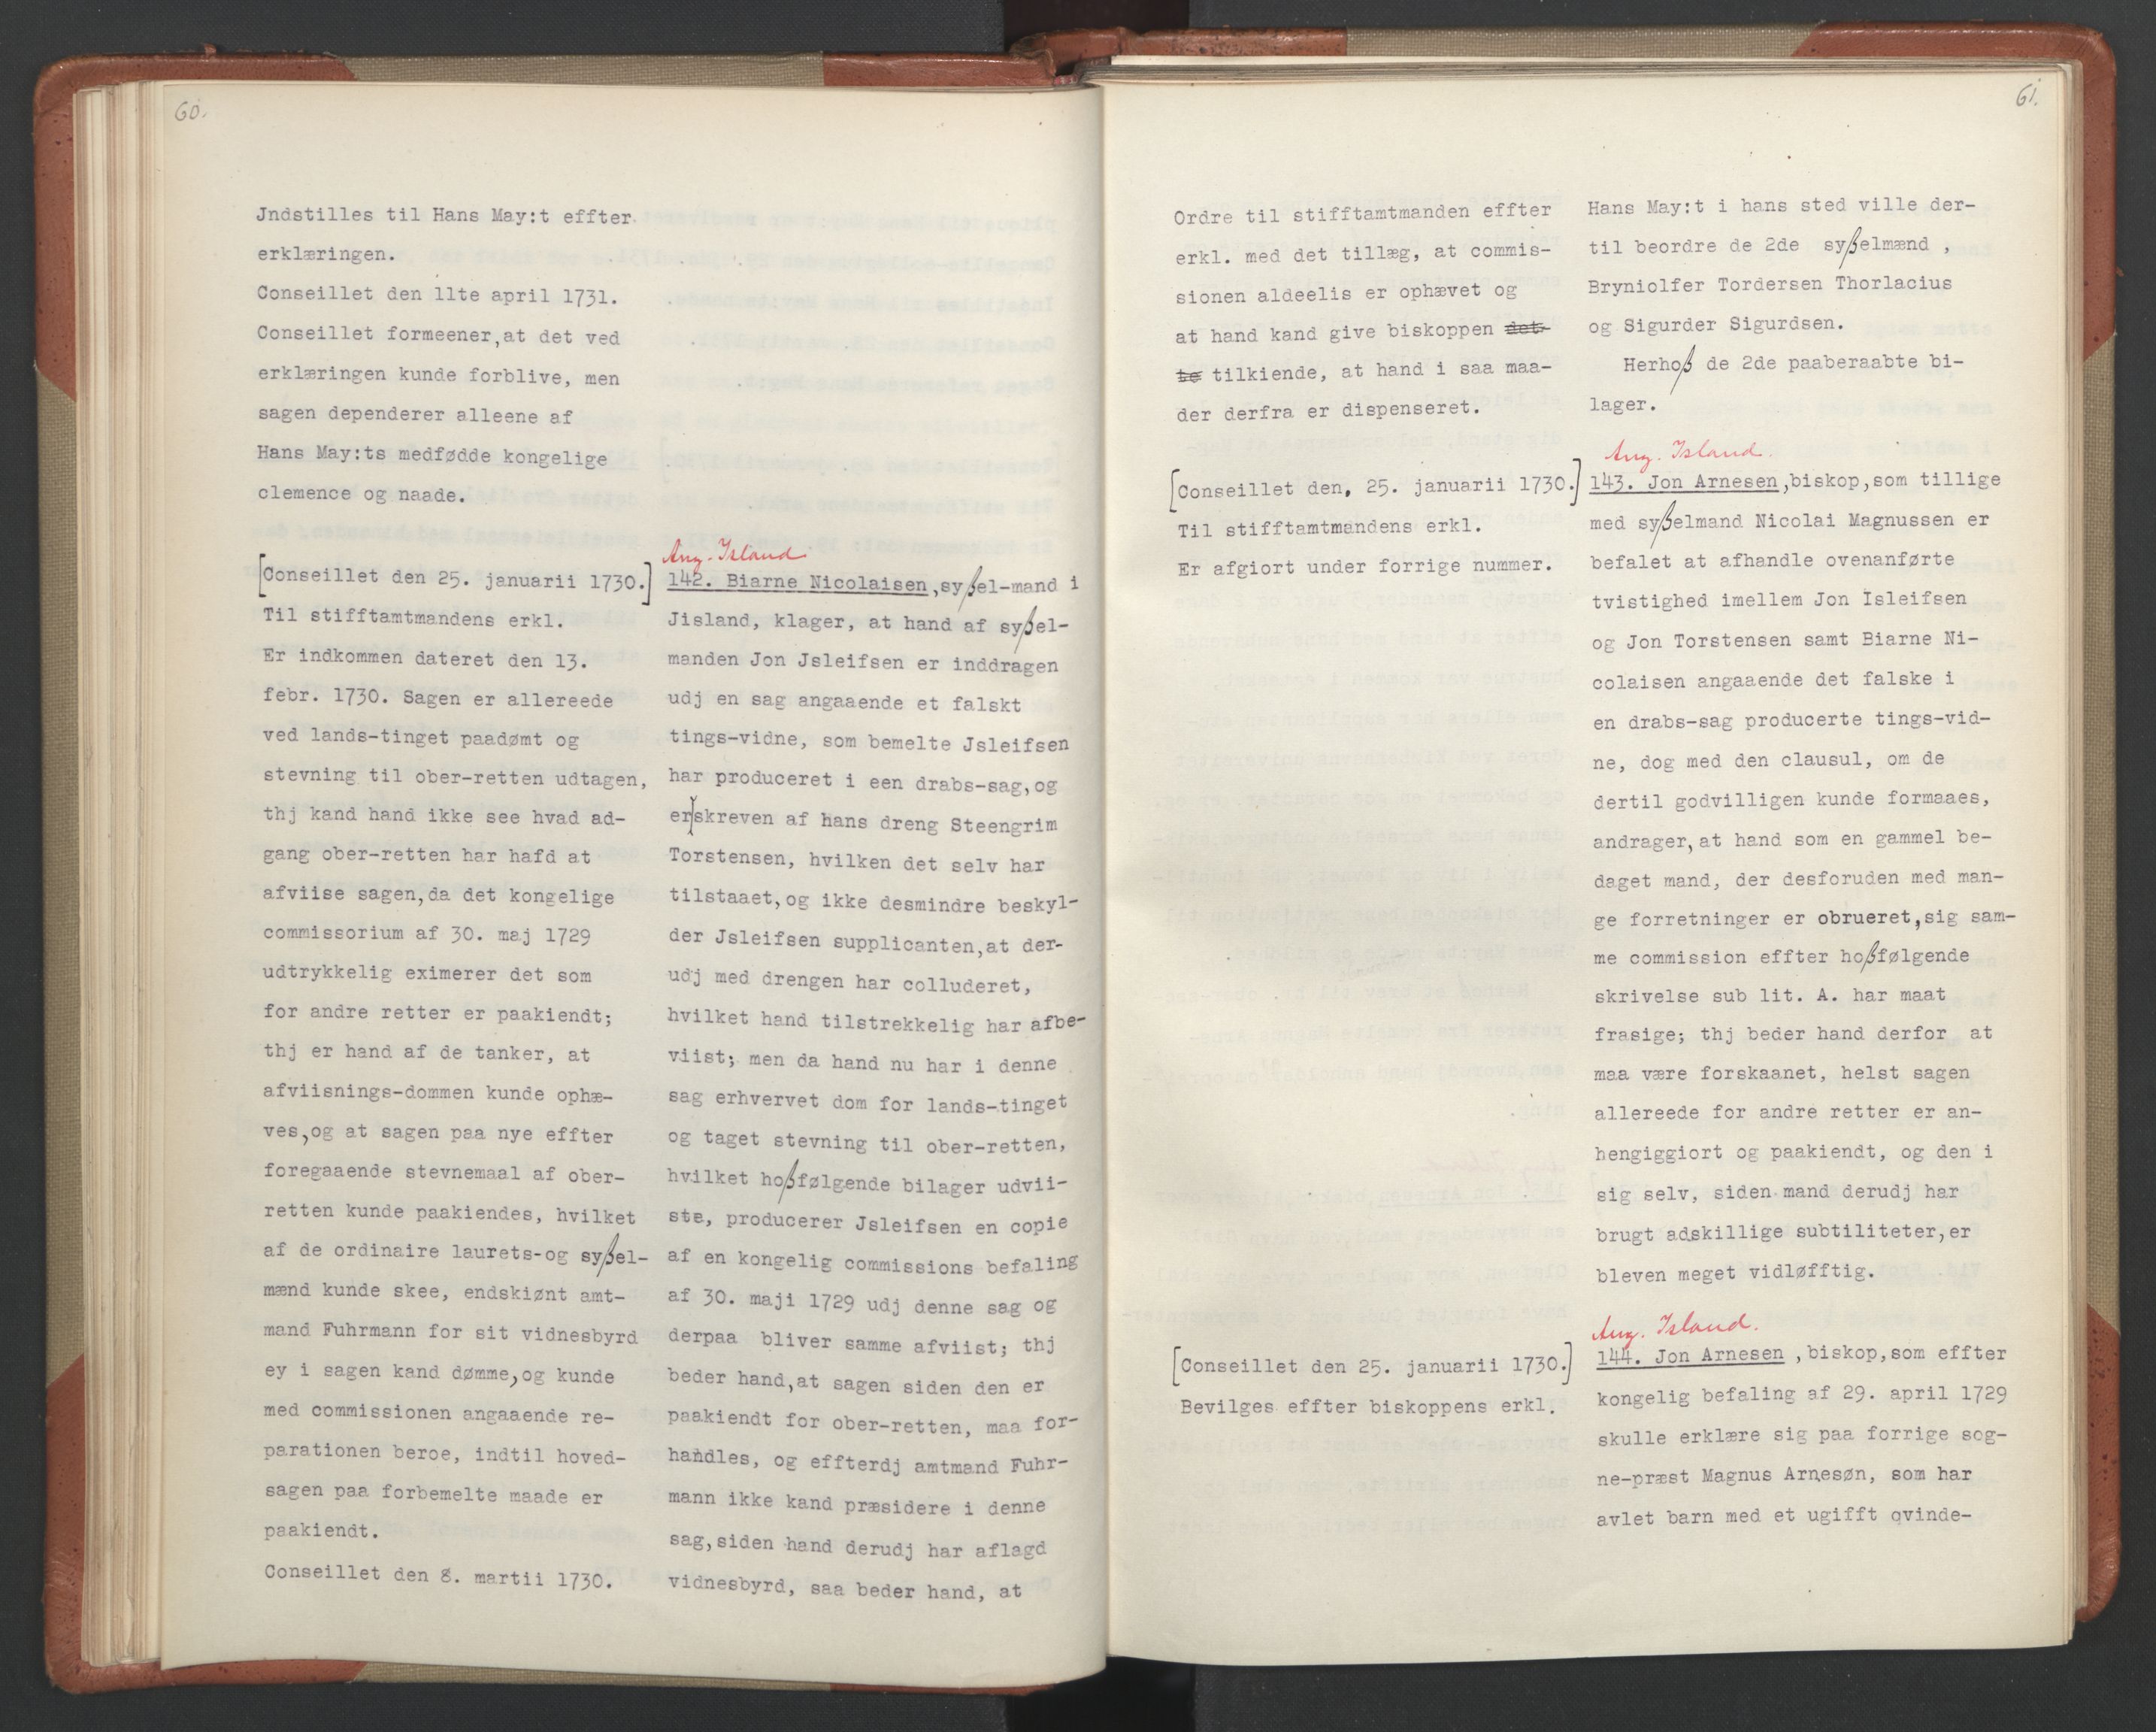 60.
Jndstilles til Hans May:t effter
erklæringen.
Conseillet den 11te april 1731.
Conseillet formeener,at det ved
erklæringen kunde forblive, men
sagen dependerer alleene af
Hans May:ts medfødde kongelige
clemence og naade.
[Conseillet den 25. januarii 1730.]
Til stifftamtmandens erkl.
Er indkommen dateret den 13.
febr. 1730. Sagen er allereede
ved lands-tinget paadømt og
stevning til ober-retten udtagen,
thj kand hand ikke see hvad ad-
gang ober-retten har hafd at
afviise sagen,da det kongelige
commissorium af 30. maj 1729
udtrykkelig eximerer det som
for andre retter er paakiendt;
thj er hand af de tanker, at
afviisnings-dommen kunde ophæ-
ves,og at sagen paa nye effter
foregaaende stevnemaal af ober-
retten kunde paakiendes, hvilket
af de ordinaire laurets-og syßel-
mænd kunde skee, endskiønt amt-
mand Fuhrmann for sit vidnesbyrd
ey i sagen kand dømme,og kunde
med commissionen angaaende re-
parationen beroe, indtil hoved-
sagen paa forbemelte maade er
paakiendt.
Conseillet den 8. martii 1730.
Ang. Island
142. Biarne Nicolaisen,syßel-mand i
Jisland, klager, at hand af syßel-
manden Jon Jsleifsen er inddragen
udj en sag angaaende et falskt
tings-vidne, som bemelte Jsleifsen
har produceret i een drabs-sag,og
er skreven af hans dreng Steengrim
Torstensen, hvilken det selv har
tilstaaet,og ikke desmindre beskyl-
der Jsleifsen supplicanten,at der-
udj med drengen har colluderet,
hvilket hand tilstrekkelig har afbe-
viist; men da hand nu har i denne
sag erhvervet dom for lands-tinget
og taget stevning til ober-retten,
hvilket hoßfølgende bilager udvii-
ste, producerer Jsleifsen en copie
af en kongelig commissions befaling
af 30. maji 1729 udj denne sag og
derpaa bliver samme afviist; thj
beder hand,at sagen siden den er
paakiendt for ober-retten, maa for-
handles, og effterdj amtmand Fuhr-
mann ikke kand præsidere i denne
sag,siden hand derudj har aflagd
vidnesbyrd, saa beder hand, at
61.
Ordre til stifftamtmanden effter
erkl. med det tillæg, at commis-
sionen aldeelis er ophævet og
at hand kand give biskoppen det-
te tilkiende, at hand i saa maa-
der derfra er dispenseret.
[Conseillet den. 25. januarii 1730.]
Til stifftamtmandens erkl.
Er afgiort under forrige nummer.
[Conseillet den 25. januarii 1730.]
Bevilges effter biskoppens erkl.
Hans May:t i hans sted ville der-
til beordre de 2de syßelmænd ,
Bryniolfer Tordersen Thorlacius
og Sigurder Sigurdsen.
Herhoß de 2de paaberaabte bi-
lager.
Ang. Island.
143. Jon Arnesen,biskop,som tillige
med syßelmand Nicolai Magnussen er
befalet at afhandle ovenanførte
tvistighed imellem Jon Isleifsen
og Jon Torstensen samt Biarne Ni-
colaisen angaaende det falske i
en drabs-sag producerte tings-vid-
ne, dog med den clausul, om de
dertil godvilligen kunde formaaes,
andrager,at hand som en gammel be-
daget mand, der desforuden med man-
ge forretninger er obrueret,sig sam-
me commission effter hoßfølgende
skrivelse sub lit. A. har maat
frasige; thj beder hand derfor at
maa være forskaanet, helst sagen
allereede for andre retter er an-
hengiggiort og paakiendt, og den i
sig selv, siden mand derudj har
brugt adskillige subtiliteter,er
bleven meget vidløfftig.
Ang. Island.
144. Jon Arnesen ,biskop,som effter
kongelig befaling af 29. april 1729
skulle erklære sig paa forrige sog-
ne-præst Magnus Arnesøn, som har
avlet barn med et ugifft qvinde-